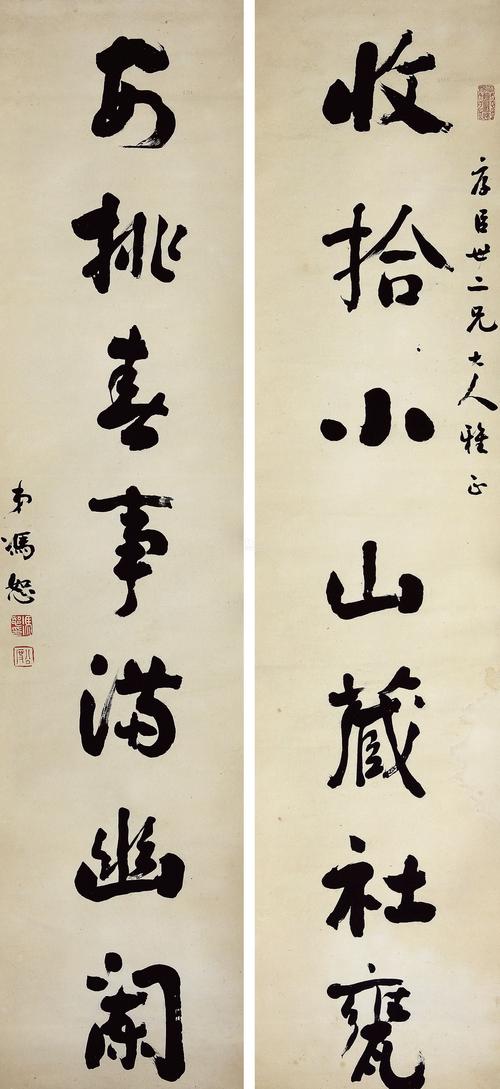 收拾小山藏社甕
臣世二兄大人雅正
安排春事滿幽闌
弟馮恕
公度